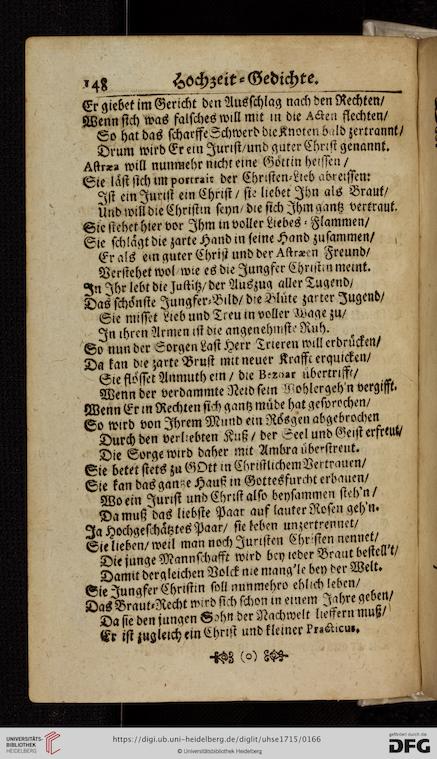 148 Hochzeit-Gedichte.
Er giebet im Gericht den Ausschlag nach den Rechten/
Wenn sich was falsches will mit in die Acten flechten/
So hat das scharffe Schwerd die Knoten bald zertrannt/
Drum wird Er ein Jurist/und guter Christ genannt.
Astræa will nunmehr nicht eine Göttin heissen/
Sie läst sich im portrait der Christen-Lieb abreissen:
Ist ein Jurist ein Christ/ sie liebet Ihn als Braut/
Und will die Christin seyn/ die sich Ihm gantz vertraut.
Sie stehet hier vor Ihm in voller Liebes-Flammen/
Sie schlägt die zarte Hand in seine Hand zusammen/
Er als ein guter Christ und der Astræen Freund/
Verstehet wol wie es die Jungfer Christin meint.
In Ihr lebt die Justitz/der Auszug aller Tugend/
Das schönste Jungfer-Bild/ die Blüte zarter Jugend/
Sie misset Lieb und Treu in voller Wage zu/
In ihren Armen ist die angenehmste Ruh.
So nun der Sorgen Last Herr Trieren will erdrücken/
Da kan die zarte Brust mit neuer Krafft erquicken/
Sie flösset Anmuth ein/ die Bezoar übertrifft/
Wenn der verdammte Neid sein Wohlergeh'n vergifft.
Wenn Er in Rechten sich gantz müde hat gesprochen/
So wird von Ihrem Mund ein Rösgen abgebrochen
Durch den verliebten Kuß/ der Seel und Geist erfreut/
Die Sorge wird daher mit Ambra überstreut.
Sie betet stets zu GOtt in Christlichem Vertrauen/
Sie kan das gantze Hauß in Gottesfurcht erbauen/
Wo ein Jurist und Christ also beysammen steh'n/
Da muß das liebste Paar auf lauter Rosen geh'n.
Ja Hochgeschätztes Paar/ sie leben unzertrennet/
Sie lieben/ weil man noch Juristen Christen nennet/
Die junge Mannschafft wird bey ieder Braut bestell't/
Damit dergleichen Volck nie mang'le bey der Welt.
Sie Jungfer Christin soll nunmehro ehlich leben/
Das Braut-Recht wird sich schon in einem Jahre geben/
Da sie den jungen Sohn der Nachwelt lieffern muß/
Er ist zugleich ein Christ und kleiner Practicus.
(o)
UNIVERSITÄTS-
BIBLIOTHEK
HEIDELBERG
https://digi.ub.uni-heidelberg.de/diglit/uhse1715/0166
© Universitätsbibliothek Heidelberg
gefördert durch die
DFG